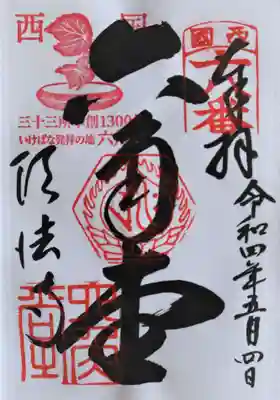 奉拝
令和四年五月四日
西国
十八番
六角堂
西国
三十三所草創1300年
いけばな発祥の地 六角
頂法寺
六角堂